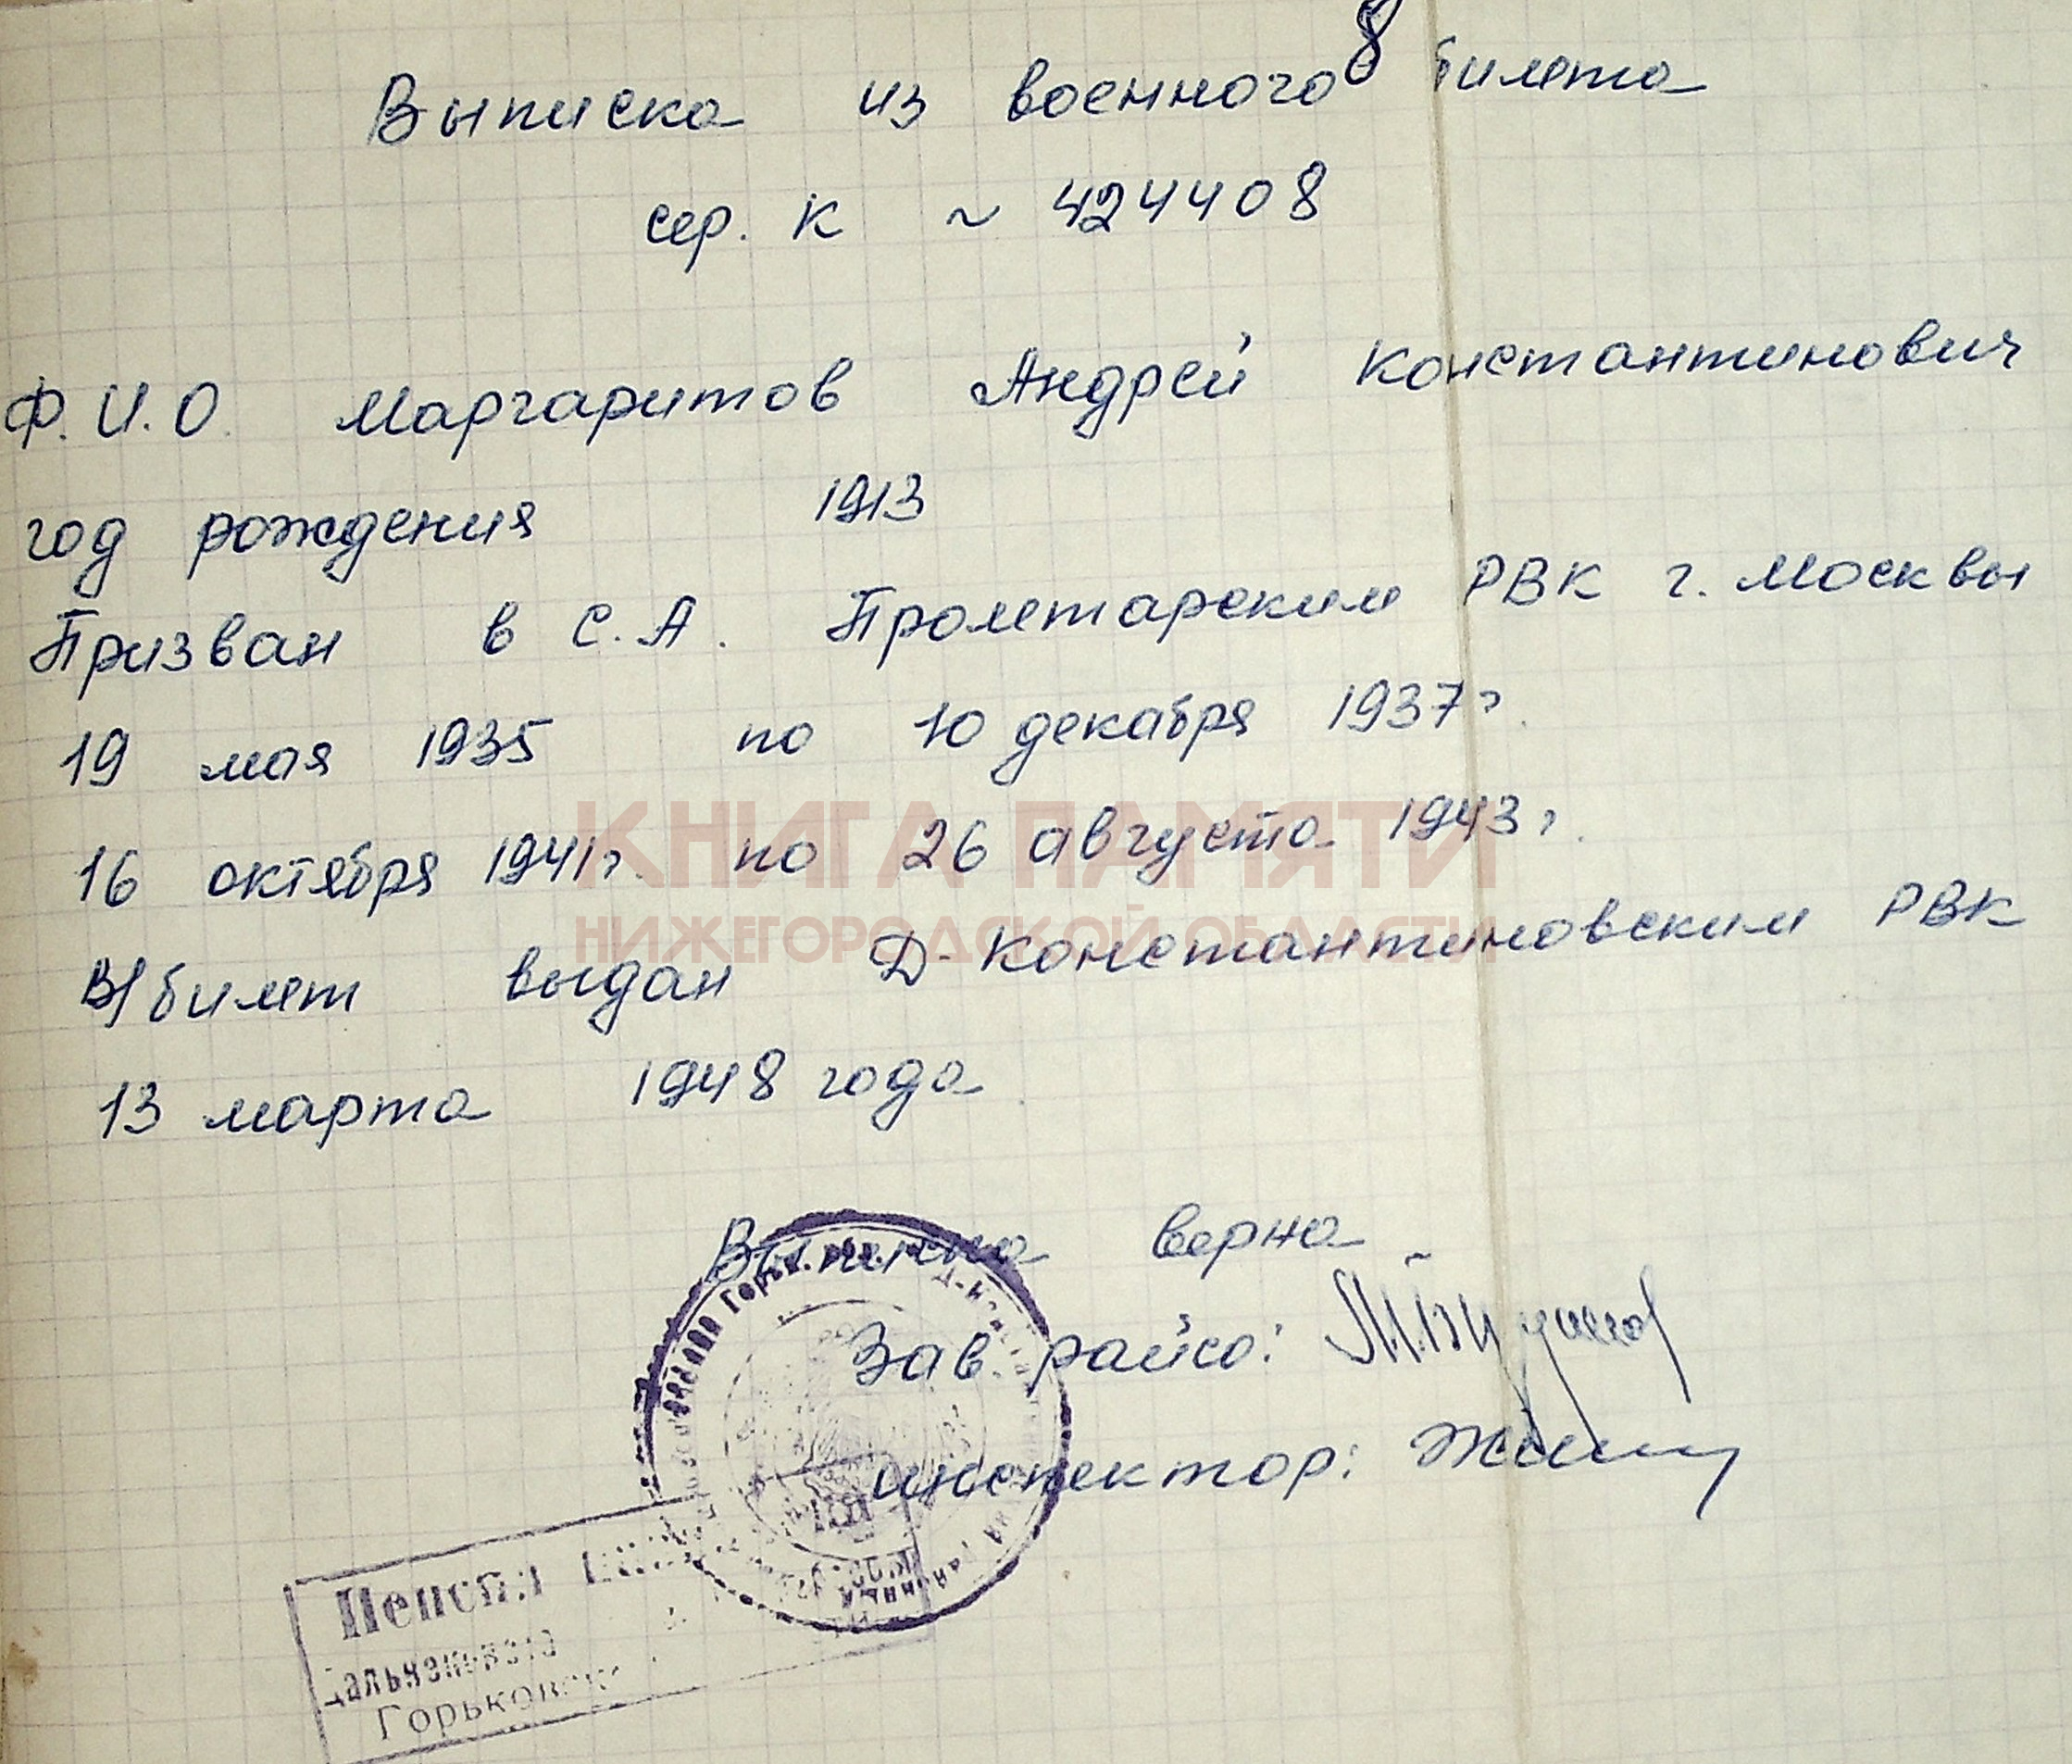 8
Выписка из военного билета
сер. К ~ 424408
Ф.И.О. Маргаритов Андрей Константинович
год рождения 1913
Призван в С.А. Пролетарским РВК г. Москвы
19 мая 1935 по 10 декабря 1937г.
16 октября 1941г. по 26 августа 1943г.
КНИГА ПАМЯТИ
НИЖЕГОРОДСКОЙ ОБЛАСТИ
В/билет выдан Д-Константиновским РВК
13 марта 1948 года
Выписка верна
Зав. райсо:
инспектор:
Горьковск